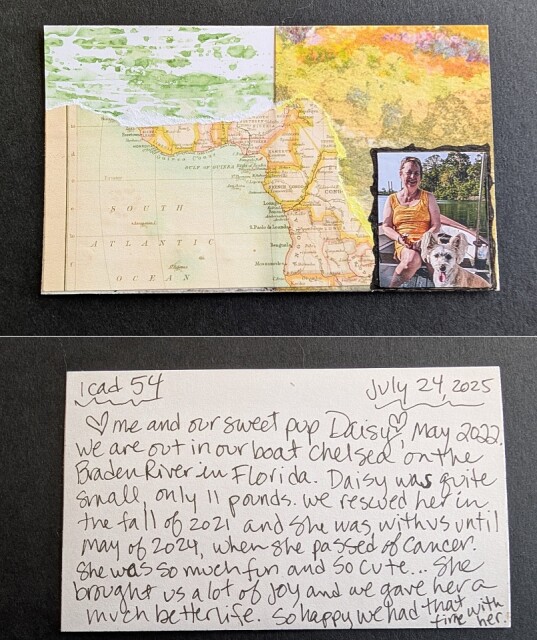 GULF OF GUINEA
SOUTH
ATLANTIC
OCEAN
icad 54
July 24, 2025
♡me and our sweet pup Daisy♡ May 2022.
we are out in our boat Chelsea on the
Braden River in Florida. Daisy was quite
small only 11 pounds. we rescued her in
the fall of 2021 and she was with us until
May of 2024, when she passed of cancer.
She was so much fun and so cute... She
brought us a lot of joy and we gave her a
much better life. So happy we had that
time with
her.